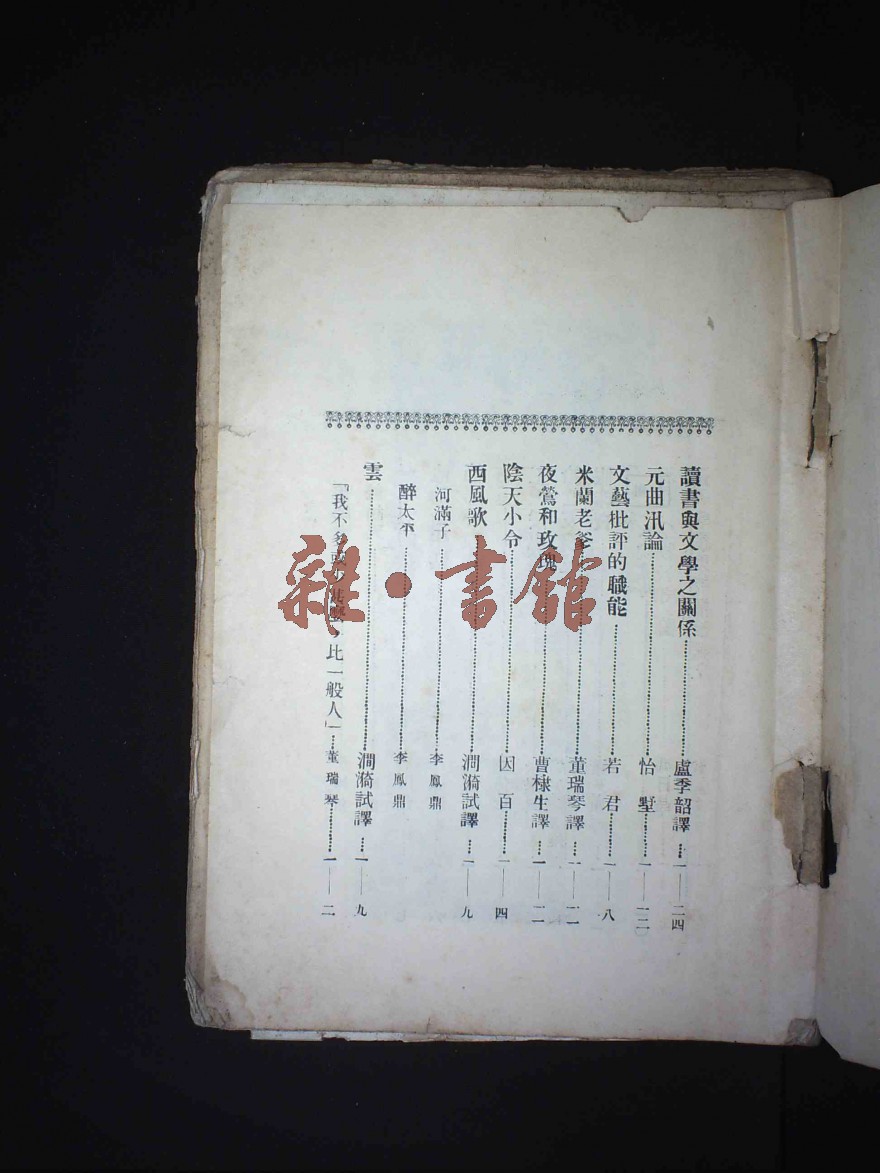 讀書與文學之關係……盧季韶譯……一——二四
元曲汎論……怡墅……一——一三
文藝批評的職能……若君……一——八
米蘭老爹……董瑞琴譯……一——一二
夜鶯和玫瑰……曹棣生譯……一——一二
陰天小令……因百……一——四
西風歌……澗漪試譯……一——九
河滿子……李鳳鼎
醉太平……李鳳鼎
雲……澗漪試譯……一——九
「我不多 比一般人」……董瑞琴……一——二
雜·書館